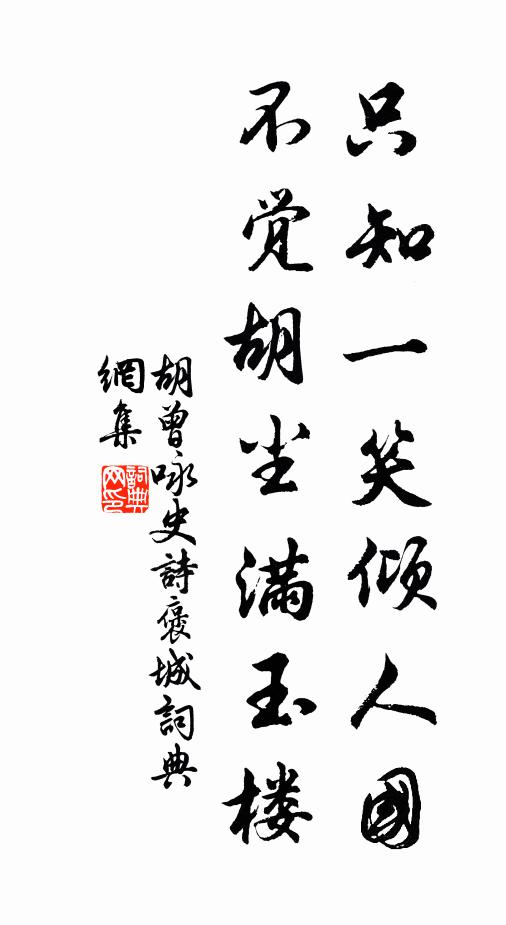 只知一笑倾人國
不觉胡尘满玉楼
胡曾咏史詩褒城詞典
網集
詞典
网印